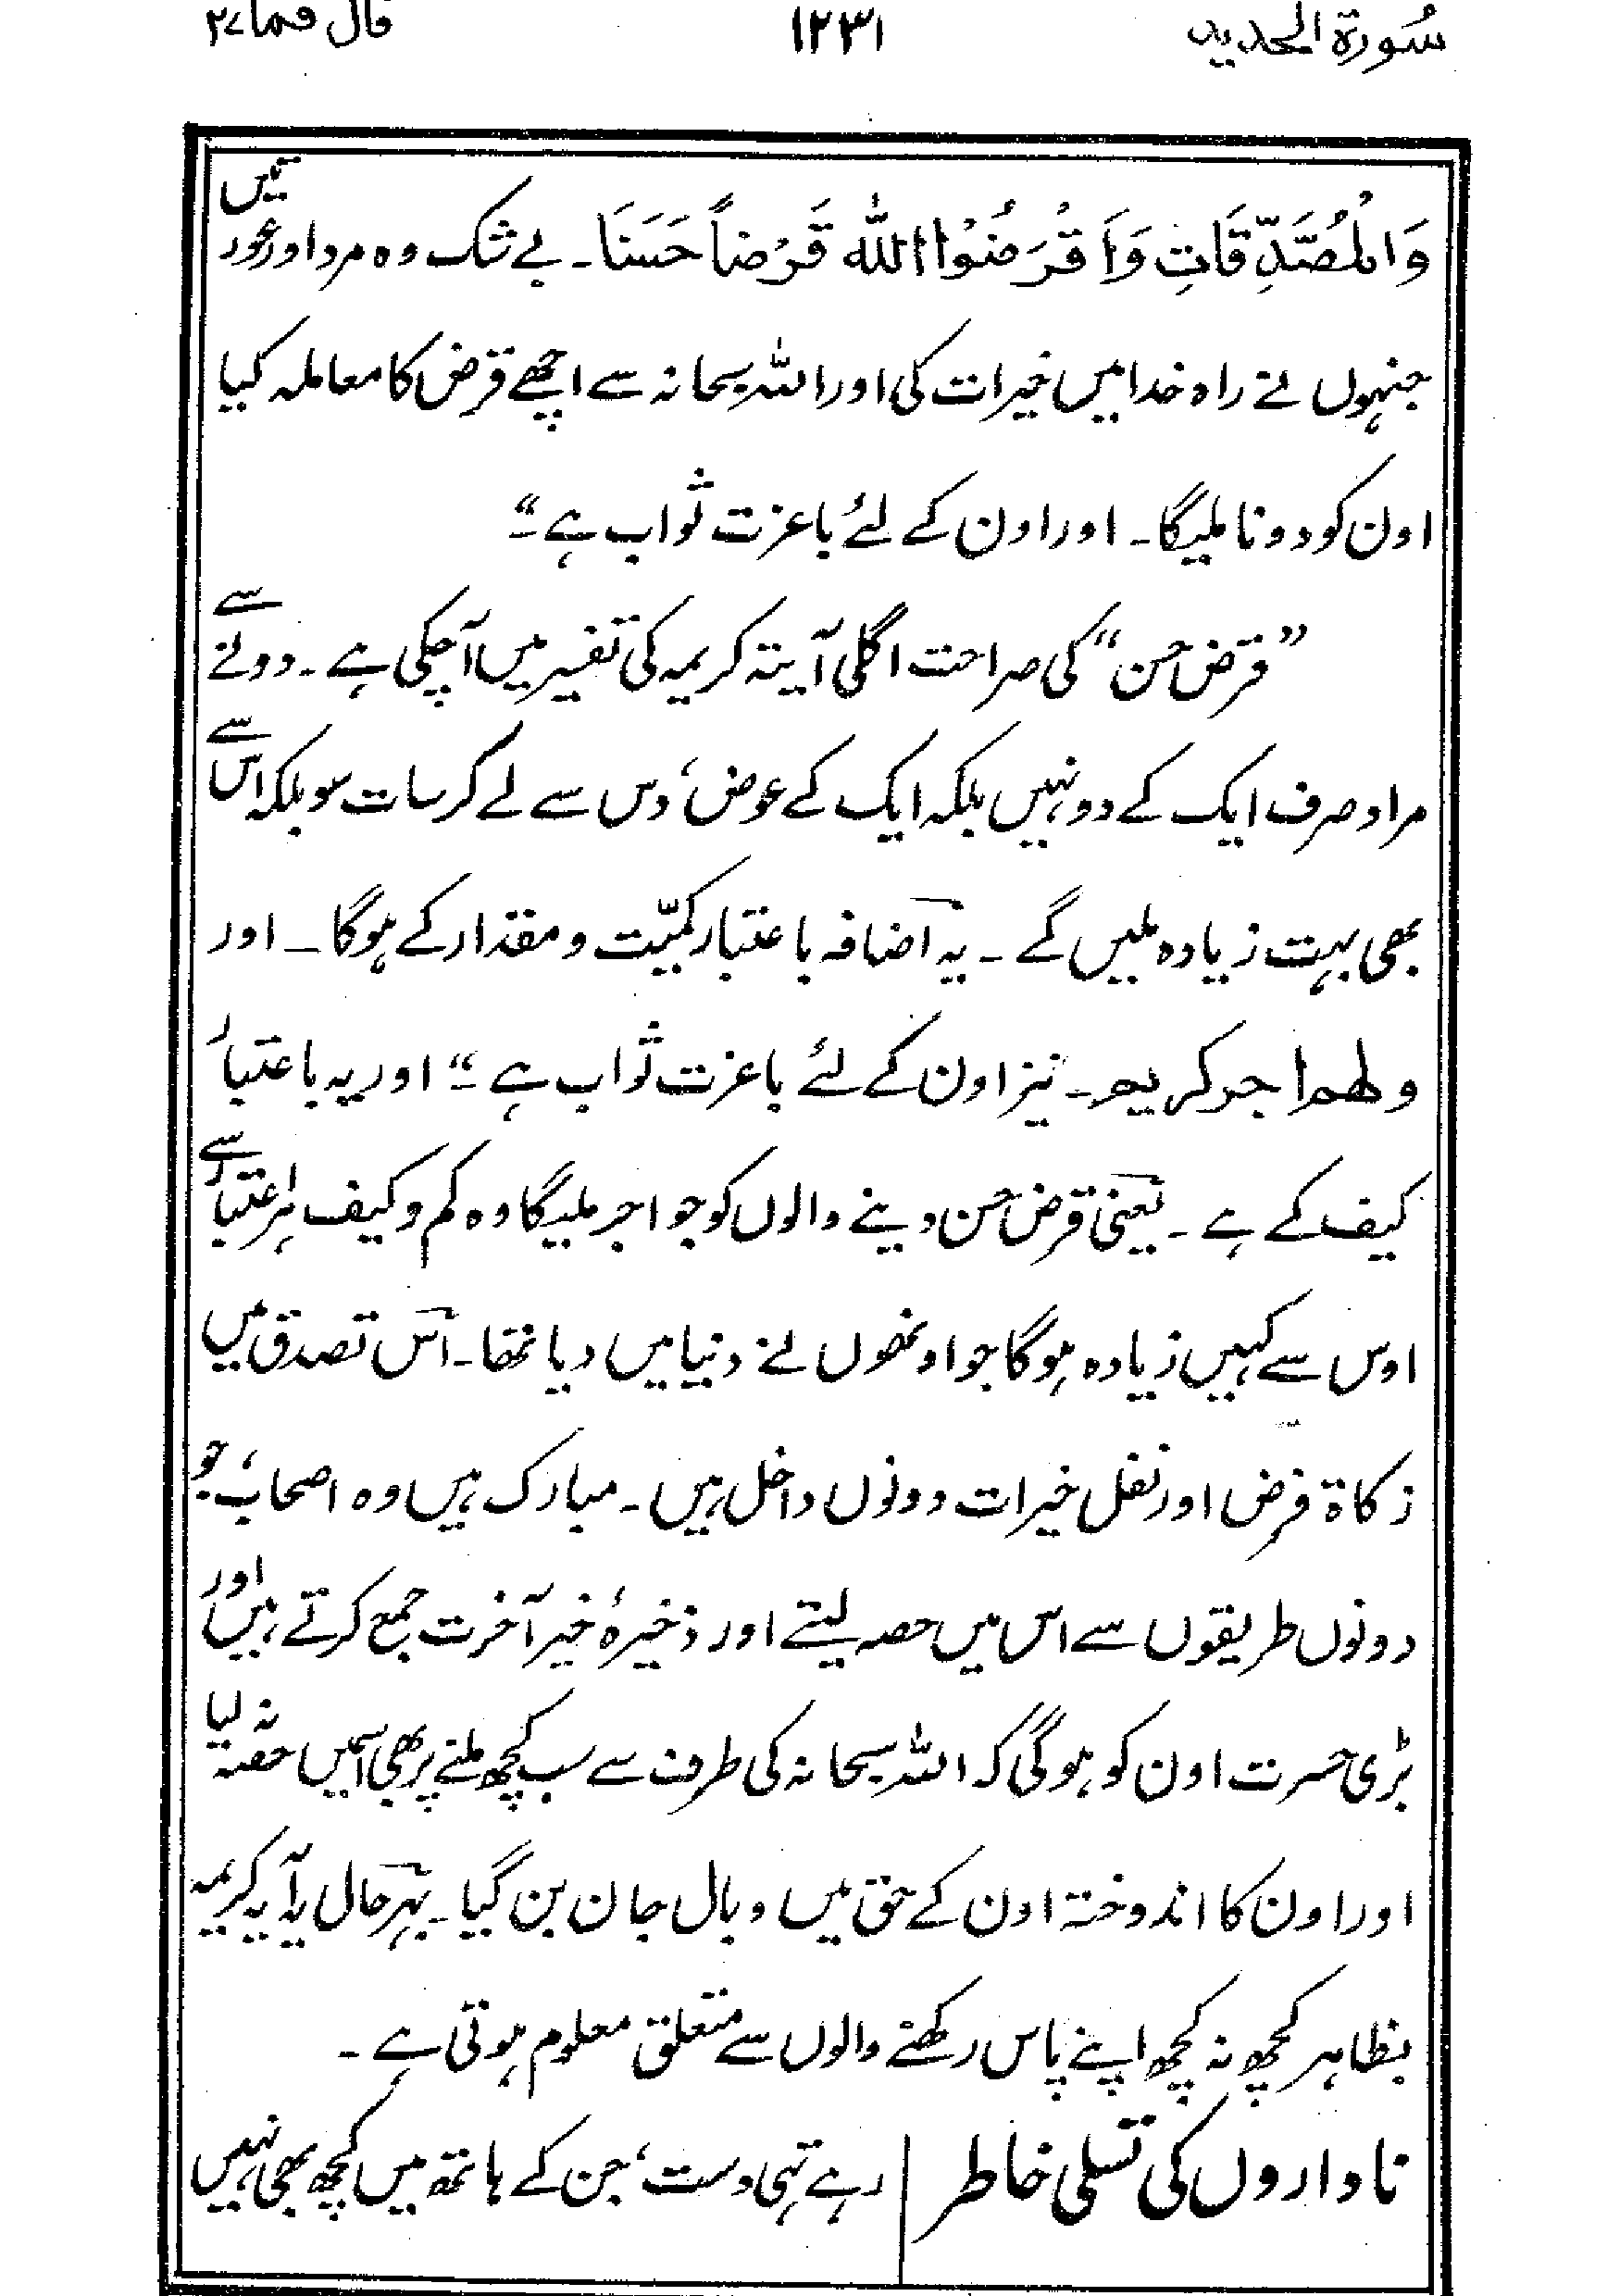 سُورة الحدید ۱۲۳۱ قال فما ۲۷
وَالْمُصَّدِّقَاتِ وَاَقْرَضُوْا اللّٰه قَرْضاً حَسَنَا۔ بے شک وہ مرد اور عورتیں
جنہوں نے راہ خدا میں خیرات کی اور اللہ سبحانہ سے اچھے قرض کا معاملہ کیا
اون کو دونا ملیگا۔ اور اون کے لئے باعزت ثواب ہے۔“
”قرض حسن“ کی صراحت اگلی آیتہ کریمہ کی تفسیر میں آچکی ہے۔ دونے سے
مراد صرف ایک کے دو نہیں بلکہ ایک کے عوض، دس سے لے کر سات سو بلکہ اس سے
بھی بہت زیادہ ملیں گے۔ یہ اضافہ باعتبار کمیّت و مقدار کے ہوگا۔ اور
ولھم اجر کریم۔ نیز اون کے لئے باعزت ثواب ہے۔“ اور یہ باعتبار
کیف کے ہے۔ یعنی قرض حسن دینے والوں کو جو اجر ملیگا وہ کم و کیف ہر اعتبار سے
اوس سے کہیں زیادہ ہوگا جو اونھوں نے دنیا میں دیا تھا۔ اس تصدق میں
زکاۃ فرض اور نفل خیرات دونوں داخل ہیں۔ مبارک ہیں وہ اصحاب، جو
دونوں طریقوں سے اس میں حصہ لیتے اور ذخیرۂ خیر آخرت جمع کرتے ہیں اور
بڑی حسرت اون کو ہوگی کہ اللہ سبحانہ کی طرف سے سب کچھ ملنے پر بھی اسمیں حصہ نہ لیا
اور اون کا اندوختہ اون کے حق میں وبال جان بن گیا۔ بہرحال یہ آیہ کریمہ
بظاہر کچھ نہ کچھ اپنے پاس رکھنے والوں سے متعلق معلوم ہوتی ہے۔
ناداروں کی تسلی خاطر | رہے تہی دست، جن کے ہاتھ میں کچھ بھی نہیں